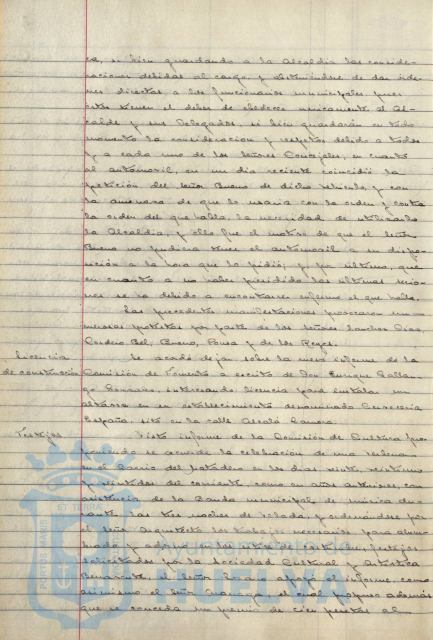 ca, si bien guardando a la Alcaldia las conside-
raciones debidas al cargo, y absteniendose de dar orde-
nes directas a los funcionarios municipales, pues
estos tienen el deber de obedecer unicamente al Al-
calde y sus Delegados, si bien guardarán en todo
momento la consideracion y respetos debido a todos
y a cada uno de los señores Concejales, en cuanto
al automovil, en un dia reciente coincidió la
peticion del señor Bueno de dicho vehiculo, y con
la amenaza de que lo usaria con la orden y contra
la orden del que habla, la necesidad de utilizarlo
la Alcaldia, y ello fue el motivo de que el señor
Bueno no pudiera tener el automovil a su dispo-
sición a la hora que lo pidió; y, por ultimo, que
en cuanto a no haber presidido las ultimas sesio-
nes se ha debido a encontrarse enfermo el que habla.
Las precedentes manifestaciones provocaron nu-
merosas protestas por parte de los señores Sanchez Diaz,
Cordero Bel, Bueno, Pousa y de los Reyes.
Licencia
de construcción
Se acordó dejar sobre la mesa informe de la
Comisión de Fomento a escrito de Don Enrique
interesando licencia para instalar un
en su establecimiento denominado Cerveceria
España, sito en la calle Alcalá Zamora.
Festejos
Visto informe de la Comisión de Cultura pro-
poniendo se acuerde la celebracion de una velada
en el Barrio del Matadero en los dias veinte, veintiuno
y veintidos del corriente, como en años anteriores, con
asistencia de la Banda municipal de música du-
rante las tres noches de velada, y ordenándose por
el señor Arquitecto los trabajos necesarios para alum-
brado y adorno en los sitios de costumbre, festejos
solicitados por la Sociedad Cultural y Artistica
Benavente, el señor apoyó el informe, como
asimismo el señor el cual propuso además
que se conceda un premio de cien pesetas al
Ayuntamiento de
HUELVA
PORTUS MARIS ET TERRAE CUSTODIA